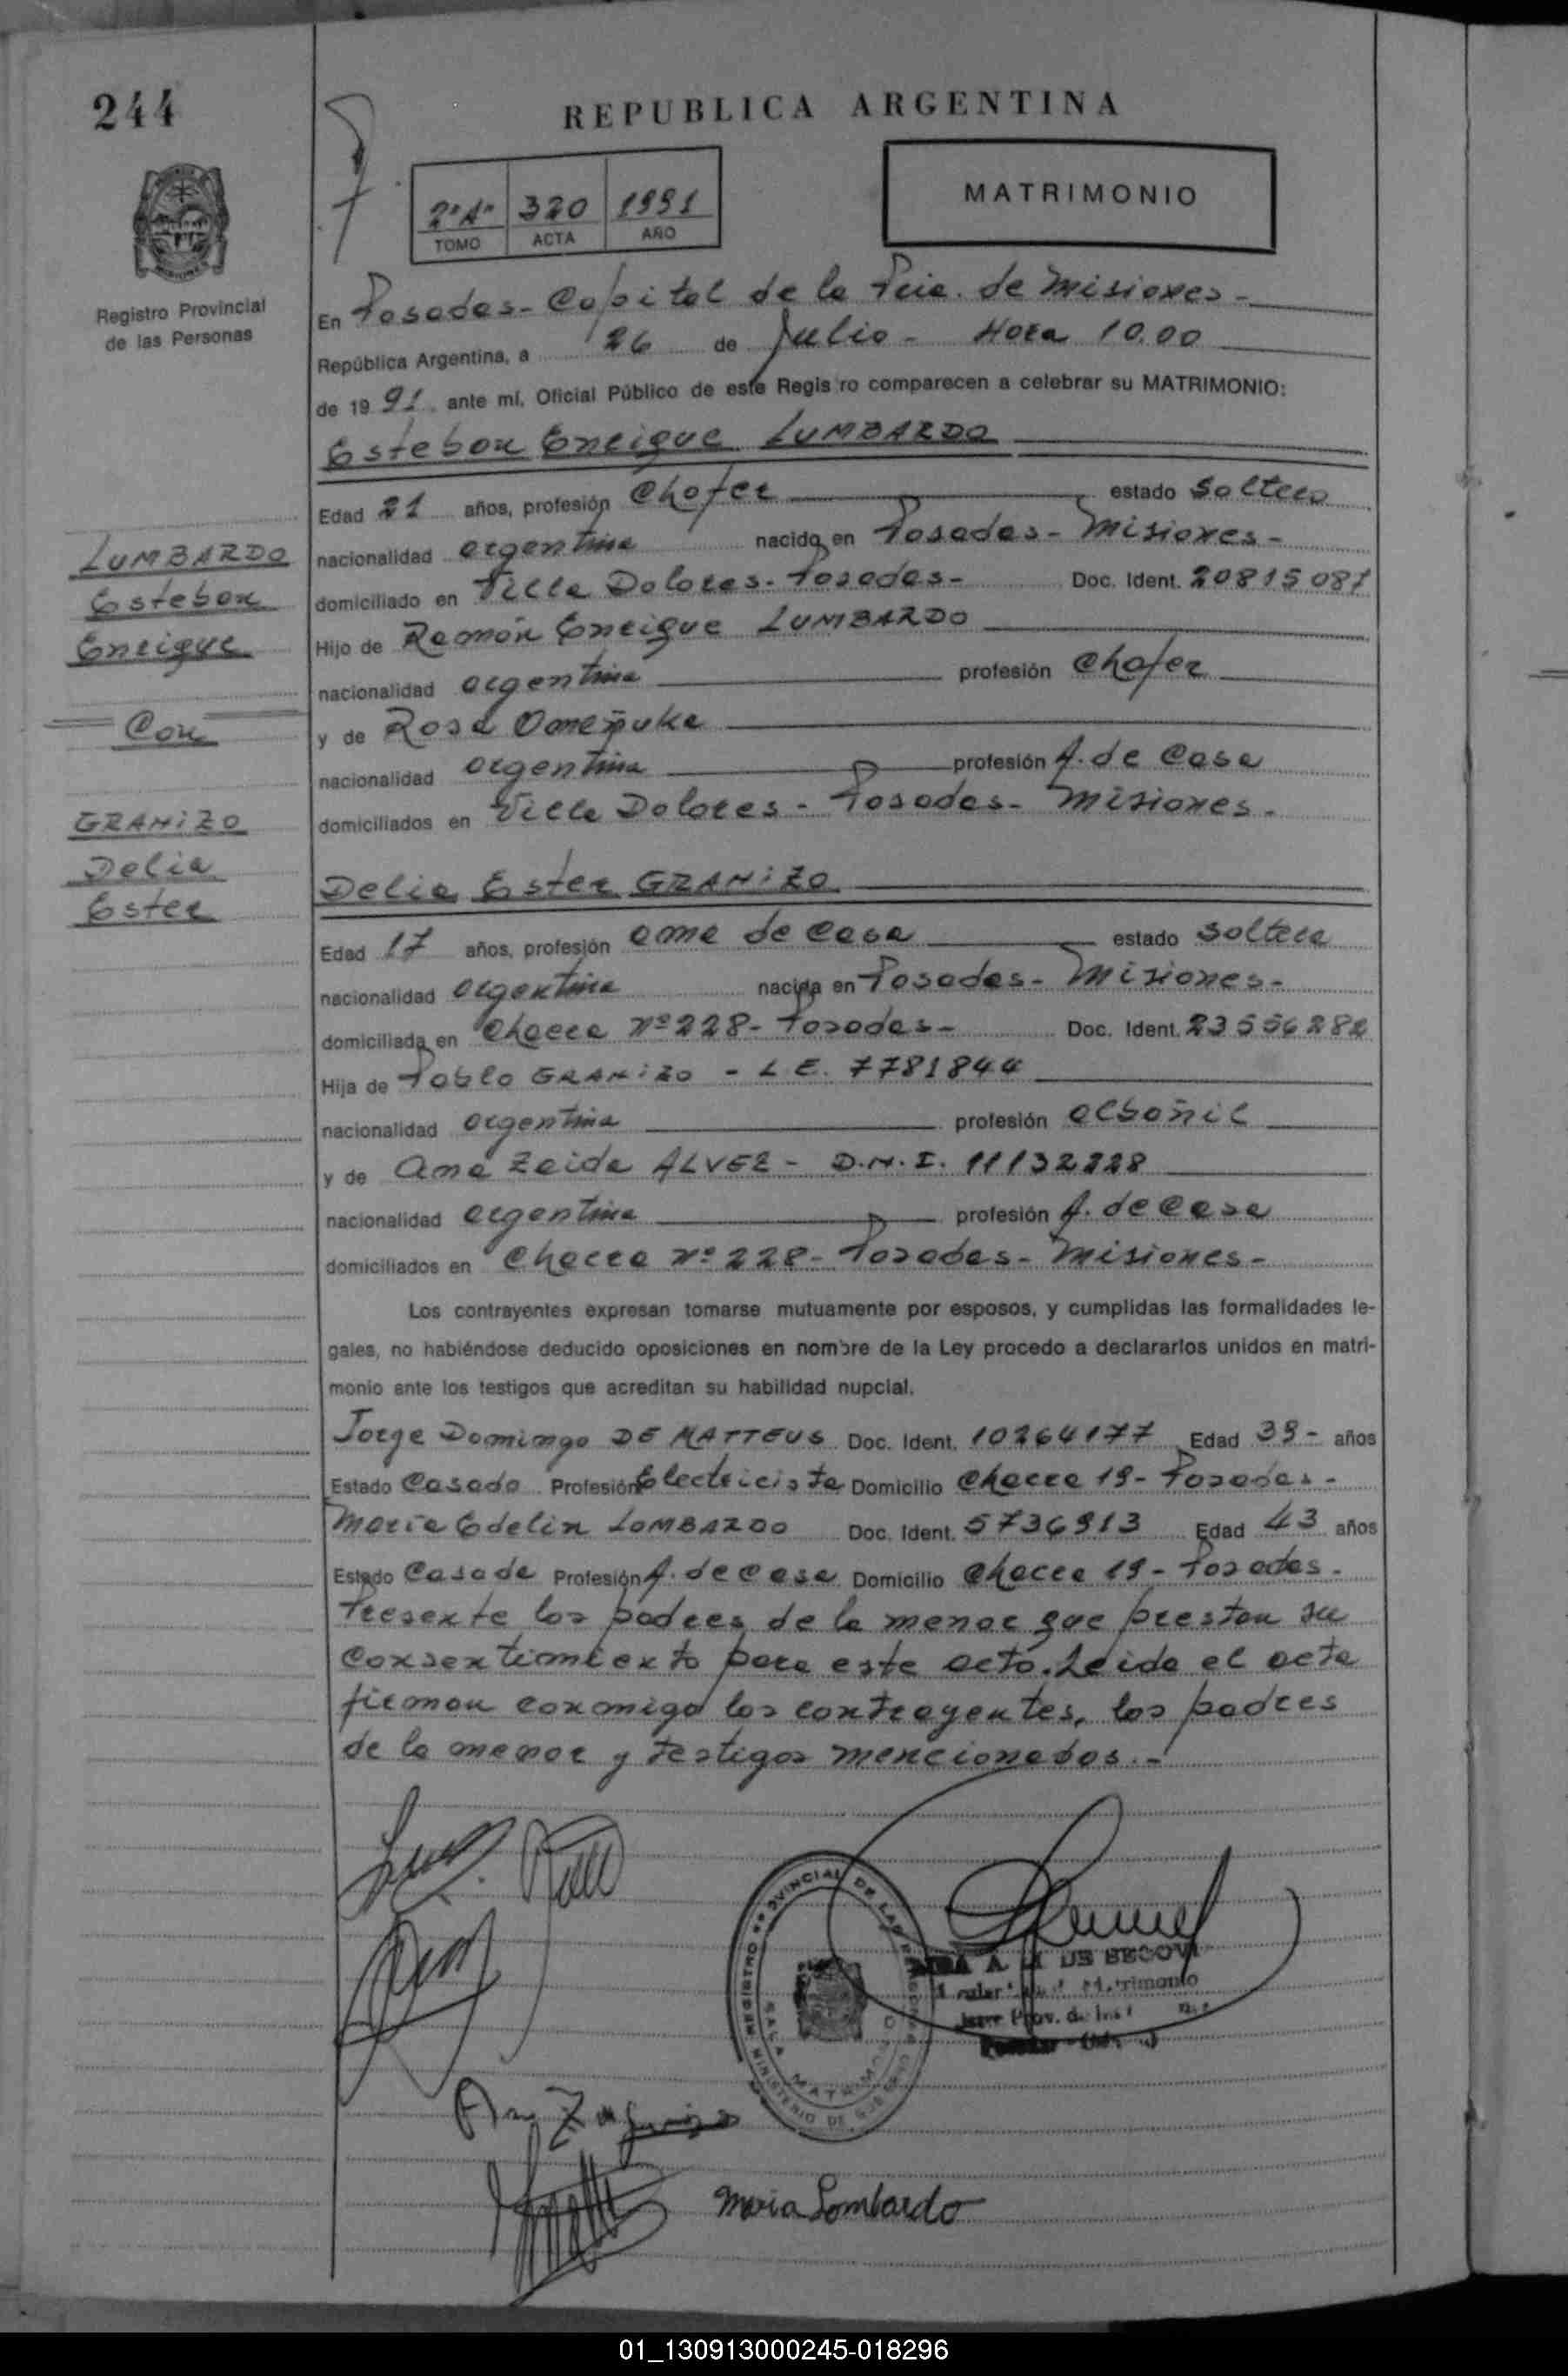 244
REPUBLICA ARGENTINA
2º Aº 320 1991
TOMO ACTA AÑO
MATRIMONIO
Registro Provincial
de las Personas
En Posadas - Capital de la Pcia. de Misiones -
República Argentina, a 26 de Julio - Hora 10.00
de 1991. ante mí, Oficial Público de este Regis ro comparecen a celebrar su MATRIMONIO:
Esteban Enrique LUMBARDO
Edad 21 años, profesión Chofer estado Soltero
LUMBARDO
Esteban
Enrique
Con
GRANIZO
Delia
Ester
nacionalidad argentina nacido en Posadas - Misiones -
domiciliado en Villa Dolores - Posadas - Doc. Ident. 20815081
Hijo de Ramón Enrique LUMBARDO
nacionalidad argentina profesión Chofer
y de Rosa
nacionalidad argentina profesión A. de Casa
domiciliados en Villa Dolores - Posadas - Misiones -
Delia Ester GRANIZO
Edad 17 años, profesión ama de Casa estado Soltera
nacionalidad argentina nacida en Posadas - Misiones -
domiciliada en Chacra Nº 228 - Posadas - Doc. Ident. 23556282
Hija de Pablo GRANIZO - L.E. 7781844
nacionalidad argentina profesión albañil
y de Ana Zaida ALVEZ - D.N.I. 11132228
nacionalidad argentina profesión A. de Casa
domiciliados en Chacra Nº 228 - Posadas - Misiones -
Los contrayentes expresan tomarse mutuamente por esposos, y cumplidas las formalidades le-
gales, no habiéndose deducido oposiciones en nombre de la Ley procedo a declararlos unidos en matri-
monio ante los testigos que acreditan su habilidad nupcial.
Jorge Domingo DE MATTEUS Doc. Ident. 10264177 Edad 39 - años
Estado Casado Profesión Electricista Domicilio Chacra 19 - Posadas -
María Edelin LOMBARDO Doc. Ident. 5736913 Edad 43 años
Estado Casada Profesión A. de Casa Domicilio Chacra 19 - Posadas -
Presente los padres de la menor que prestan su
Consentimiento para este acto. Leída el acta
firman conmigo los contrayentes, los padres
de la menor y testigos mencionados. -
REGISTRO PROVINCIAL DE LAS
SALA MATRIMONIO
MINISTERIO DE GOBIERNO
Maria Lombardo
01_130913000245-018296